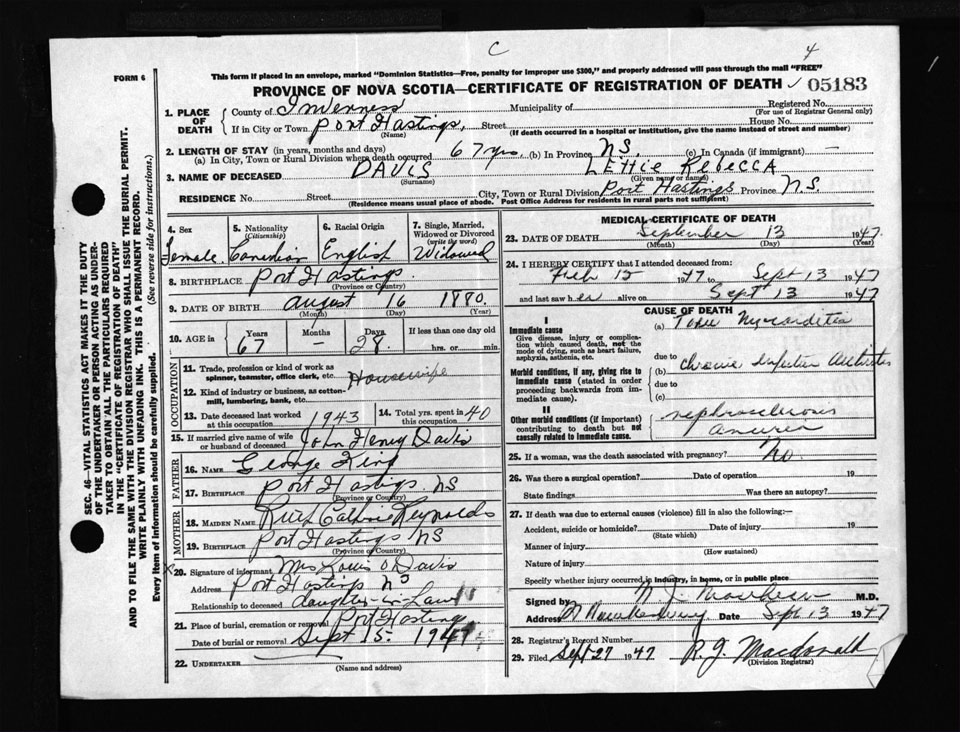 C
4
FORM 6
This form if placed in an envelope, marked "Dominion Statistics—Free, penalty for improper use $300," and properly addressed will pass through the mail "FREE"
PROVINCE OF NOVA SCOTIA—CERTIFICATE OF REGISTRATION OF DEATH 05183
1. PLACE OF DEATH
County of Inverness Municipality of Registered No.
(For use of Registrar General only)
If in City or Town Port Hastings, Street House No.
(Name) (If death occurred in a hospital or institution, give the name instead of street and number)
2. LENGTH OF STAY (in years, months and days)
(a) In City, Town or Rural Division where death occurred 67 yrs (b) In Province NS. (c) In Canada (if immigrant) —
3. NAME OF DECEASED DAVIS LETTIE REBECCA
(Surname) (Given name or names)
RESIDENCE No. Street City, Town or Rural Division Port Hastings Province N.S.
(Residence means usual place of abode. Post Office Address for residents in rural parts not sufficient)
SEC. 46—VITAL STATISTICS ACT MAKES IT THE DUTY
OF THE UNDERTAKER OR PERSON ACTING AS UNDER-
TAKER TO OBTAIN ALL THE PARTICULARS REQUIRED
IN THE "CERTIFICATE OF REGISTRATION OF DEATH"
AND TO FILE THE SAME WITH THE DIVISION REGISTRAR WHO SHALL ISSUE THE BURIAL PERMIT.
WRITE PLAINLY WITH UNFADING INK. THIS IS A PERMANENT RECORD.
Every item of information should be carefully supplied. (See reverse side for instructions.)
4. Sex
Female
5. Nationality
(Citizenship)
Canadian
6. Racial Origin
English
7. Single, Married,
Widowed or Divorced
(write the word)
Widowed
8. BIRTHPLACE Port Hastings
(Province or Country)
9. DATE OF BIRTH August 16 1880.
(Month) (Day) (Year)
10. AGE in Years Months Days If less than one day old
67 — 28 hrs. or min.
OCCUPATION
11. Trade, profession or kind of work as
spinner, teamster, office clerk, etc. Housewife
12. Kind of industry or business, as cotton-
mill, lumbering, bank, etc.
13. Date deceased last worked
at this occupation 1943
14. Total yrs. spent in
this occupation 40
15. If married give name of wife
or husband of deceased John Henry Davis
FATHER
16. NAME George King
17. BIRTHPLACE Port Hastings NS
(Province or Country)
MOTHER
18. MAIDEN NAME Catherine Reynolds
19. BIRTHPLACE Port Hastings NS
(Province or Country)
20. Signature of informant Mrs Louis O Davis
Address Port Hastings NS
Relationship to deceased daughter-in-Law
21. Place of burial, cremation or removal Port Hastings
Date of burial or removal Sept 15 1947
22. UNDERTAKER
(Name and address)
MEDICAL CERTIFICATE OF DEATH
23. DATE OF DEATH September 13 1947
(Month) (Day) (Year)
24. I HEREBY CERTIFY that I attended deceased from:
Feb 15 1947 to Sept 13 1947
and last saw her alive on Sept 13 1947
CAUSE OF DEATH
I
Immediate cause
Give disease, injury or complica-
tion which caused death, not the
mode of dying, such as heart failure,
asphyxia, asthenia, etc.
(a) Toxic Myocarditis
due to
Morbid conditions, if any, giving rise to
immediate cause (stated in order
proceeding backwards from im-
mediate cause).
(b) Chronic Arthritis
due to
(c)
II
Other morbid conditions (if important)
contributing to death but not
causally related to immediate cause.
nephrosclerosis
25. If a woman, was the death associated with pregnancy? No.
26. Was there a surgical operation? Date of operation 19
State findings Was there an autopsy?
27. If death was due to external causes (violence) fill in also the following:—
Accident, suicide or homicide? Date of injury 19
(State which)
Manner of injury
(How sustained)
Nature of injury
Specify whether injury occurred in industry, in home, or in public place
Signed by M.D.
Address Date Sept. 13 1947
28. Registrar's Record Number
29. Filed Sept 27 1947 R. J. Macdonald
(Division Registrar)